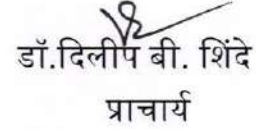 डॉ.दिलीप बी. शिंदे
प्राचार्य